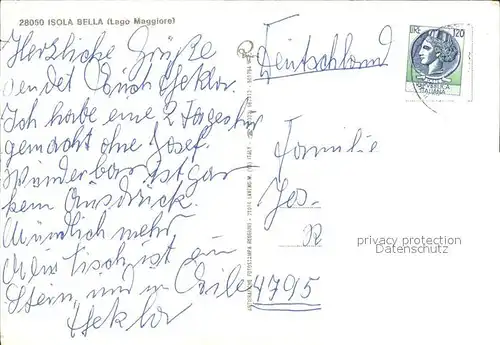 28050 ISOLA BELLA (Lago Maggiore)
Herzliche Grüße
sendet Euch Thekla.
Ich habe eine 2 Tages
gemacht ohne Josef.
Wunderbar ist gar
kein Ausdruck.
Mündlich mehr.
tisch ist ein
Stein, und in Eile
Thekla
LIRE 120
ITALIANA
Deutschland
Familie
Jos.
R
privacy protection
Datenschutz
4795